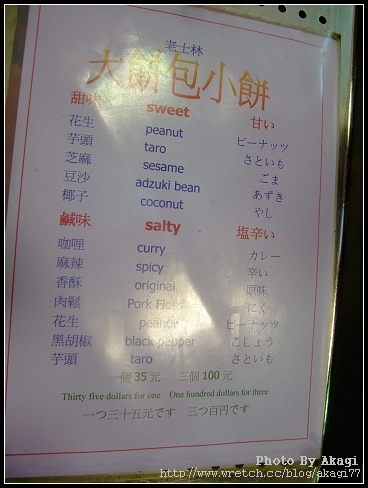 老士林
大餅包小餅
甜味 sweet 甘い
花生 peanut ピーナッツ
芋頭 taro さといも
芝麻 sesame ごま
豆沙 adzuki bean あずき
椰子 coconut やし
鹹味 salty 塩辛い
咖哩 curry カレー
麻辣 spicy 辛い
香酥 original 原味
肉鬆 Pork Floss にく
花生 peanut ピーナッツ
黑胡椒 black pepper こしょう
芋頭 taro さといも
一個 35 元 三個 100 元
Thirty five dollars for one One hundred dollars for three
一つ三十五元です 三つ百円です
Photo By Akagi
http://www.wretch.cc/blog/akagi77